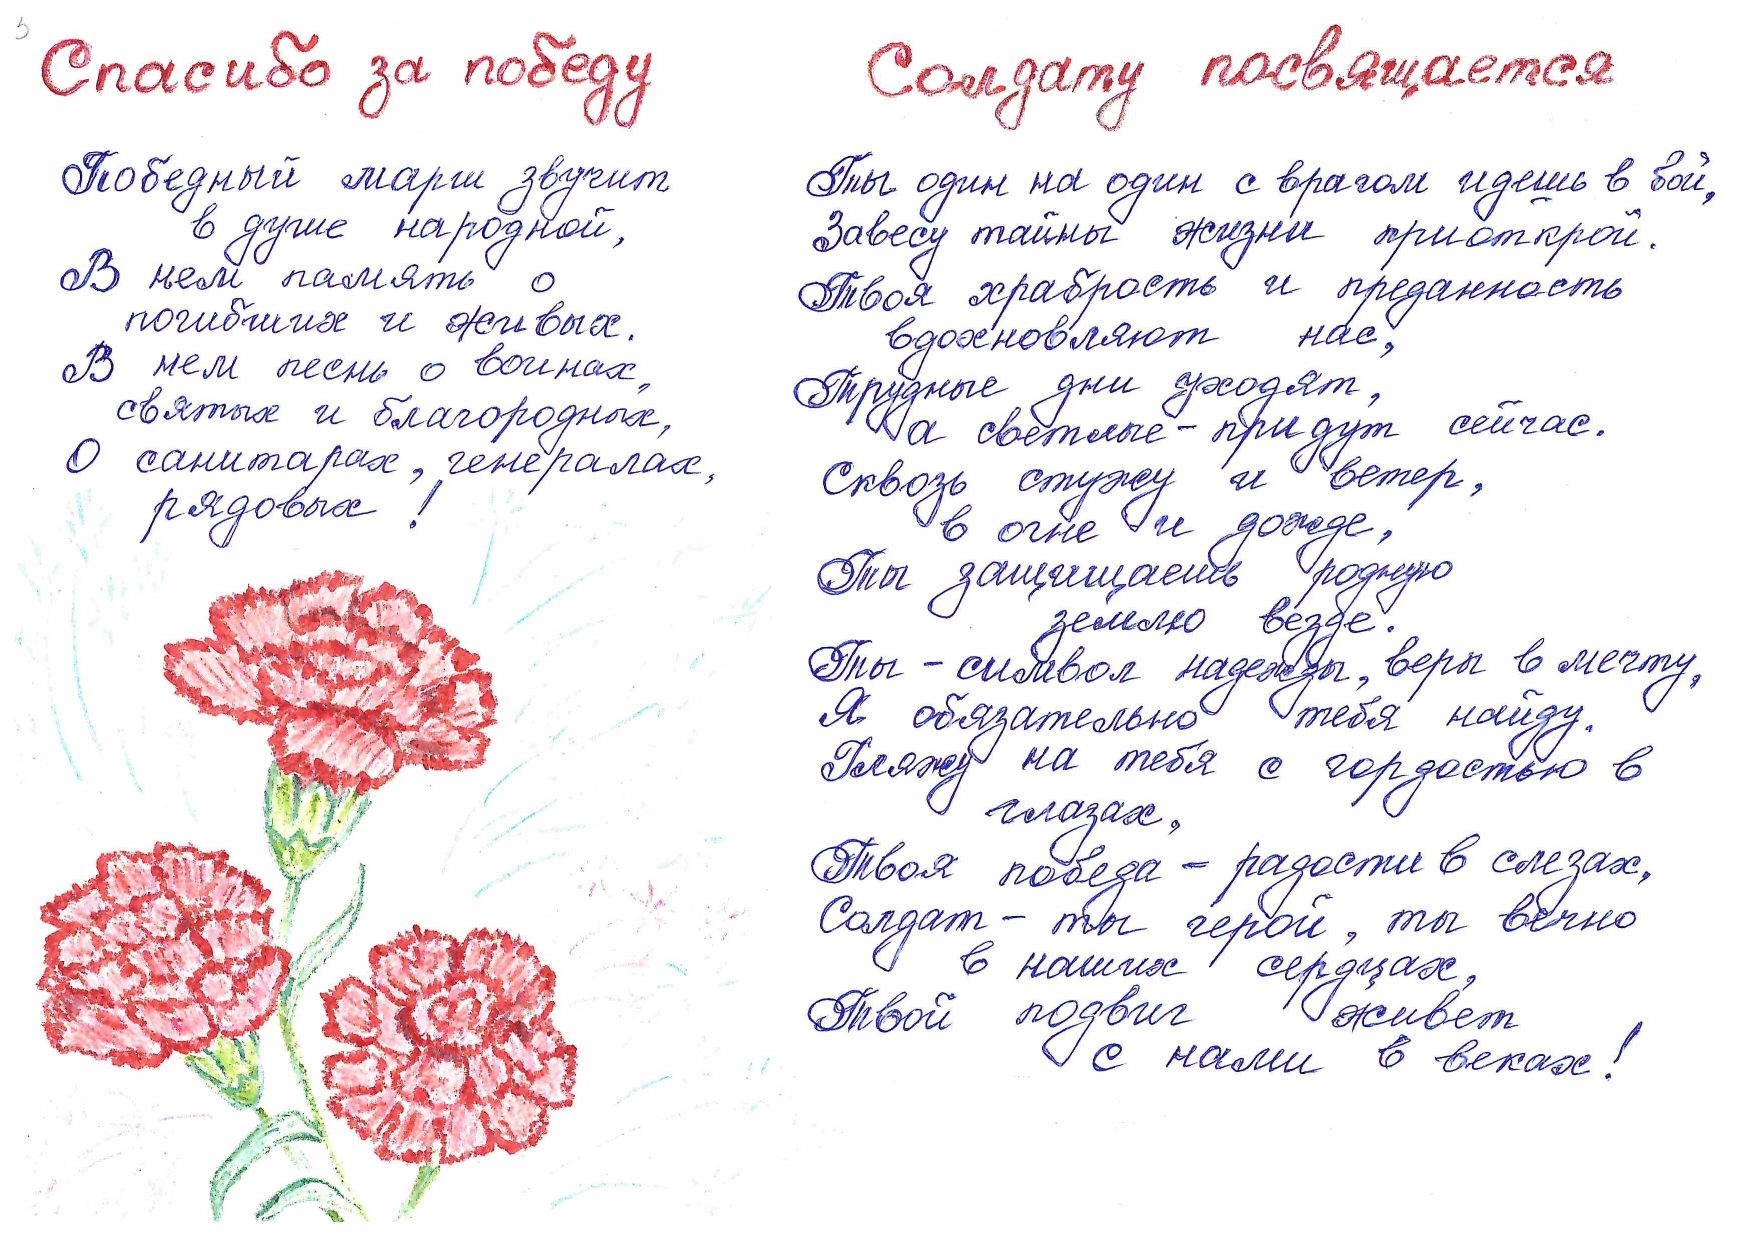 Спасибо за победу
Победный марш звучит
в душе народной,
В нем память о
погибших и живых.
В нем песнь о воинах,
святых и благородных,
О санитарах, генералах,
рядовых!
Солдату посвящается
Ты один на один с врагом идешь в бой,
Завесу тайны жизни приоткрой.
Твоя храбрость и преданность
вдохновляют нас,
Трудные дни уходят,
а светлые - придут сейчас.
Сквозь стужу и ветер,
в огне и дожде,
Ты защищаешь родную
землю везде.
Ты - символ надежды, веры в мечту,
Я обязательно тебя найду.
Гляжу на тебя с гордостью в
глазах,
Твоя победа - радости в слезах,
Солдат - ты герой, ты вечно
в наших сердцах,
Твой подвиг живет
с нами в веках!